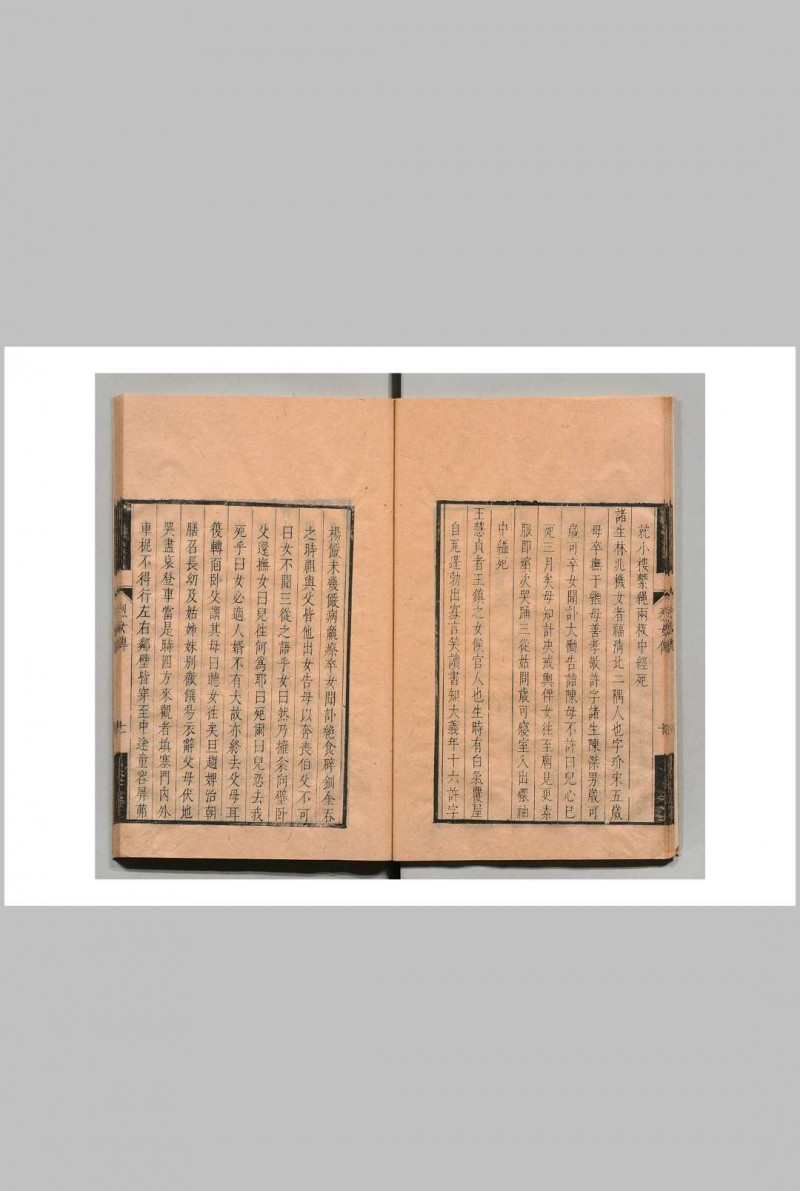 就小樓繫繩兩夜中經死
諸生林兆機女者福清北二隅人也字玠宋五歲
母卒撫于繼母善孝敬許字諸生陳葆男歲可
歲可卒女聞訃大慟告詣陳母不許曰兒心已
死三月矣母知計決戒輿俾女往至廟見更素
服即靈次哭踊三從姑問歲可寢室入出繯袖
中縊死
王慧貞者王鎮之女候官人也生時有白氣覆屋
自瓦蓬勃出寡言笑讀書知大義年十六許字
楊儼未幾儼病癘瘵卒女聞訃絕食辟釧金吞
之時祖與父皆他出女告母以奔喪伯父不可
曰女不聞三從之語乎女曰然乃擁衾向壁卧
父還撫女曰兒往何為耶曰死爾曰兒忍去我
死乎曰女必適人婿不有大故亦終去父母耳
復轉面卧父謂其母曰聽女往矣旦趣婢治朝
膳召長幼及姑姊妹別徹饌易衣辭父母伏地
哭盡哀登車當是時四方來觀者填塞門內外
車柅不得行左右鄰壁皆穿至中途童容屏茀
烈女傳